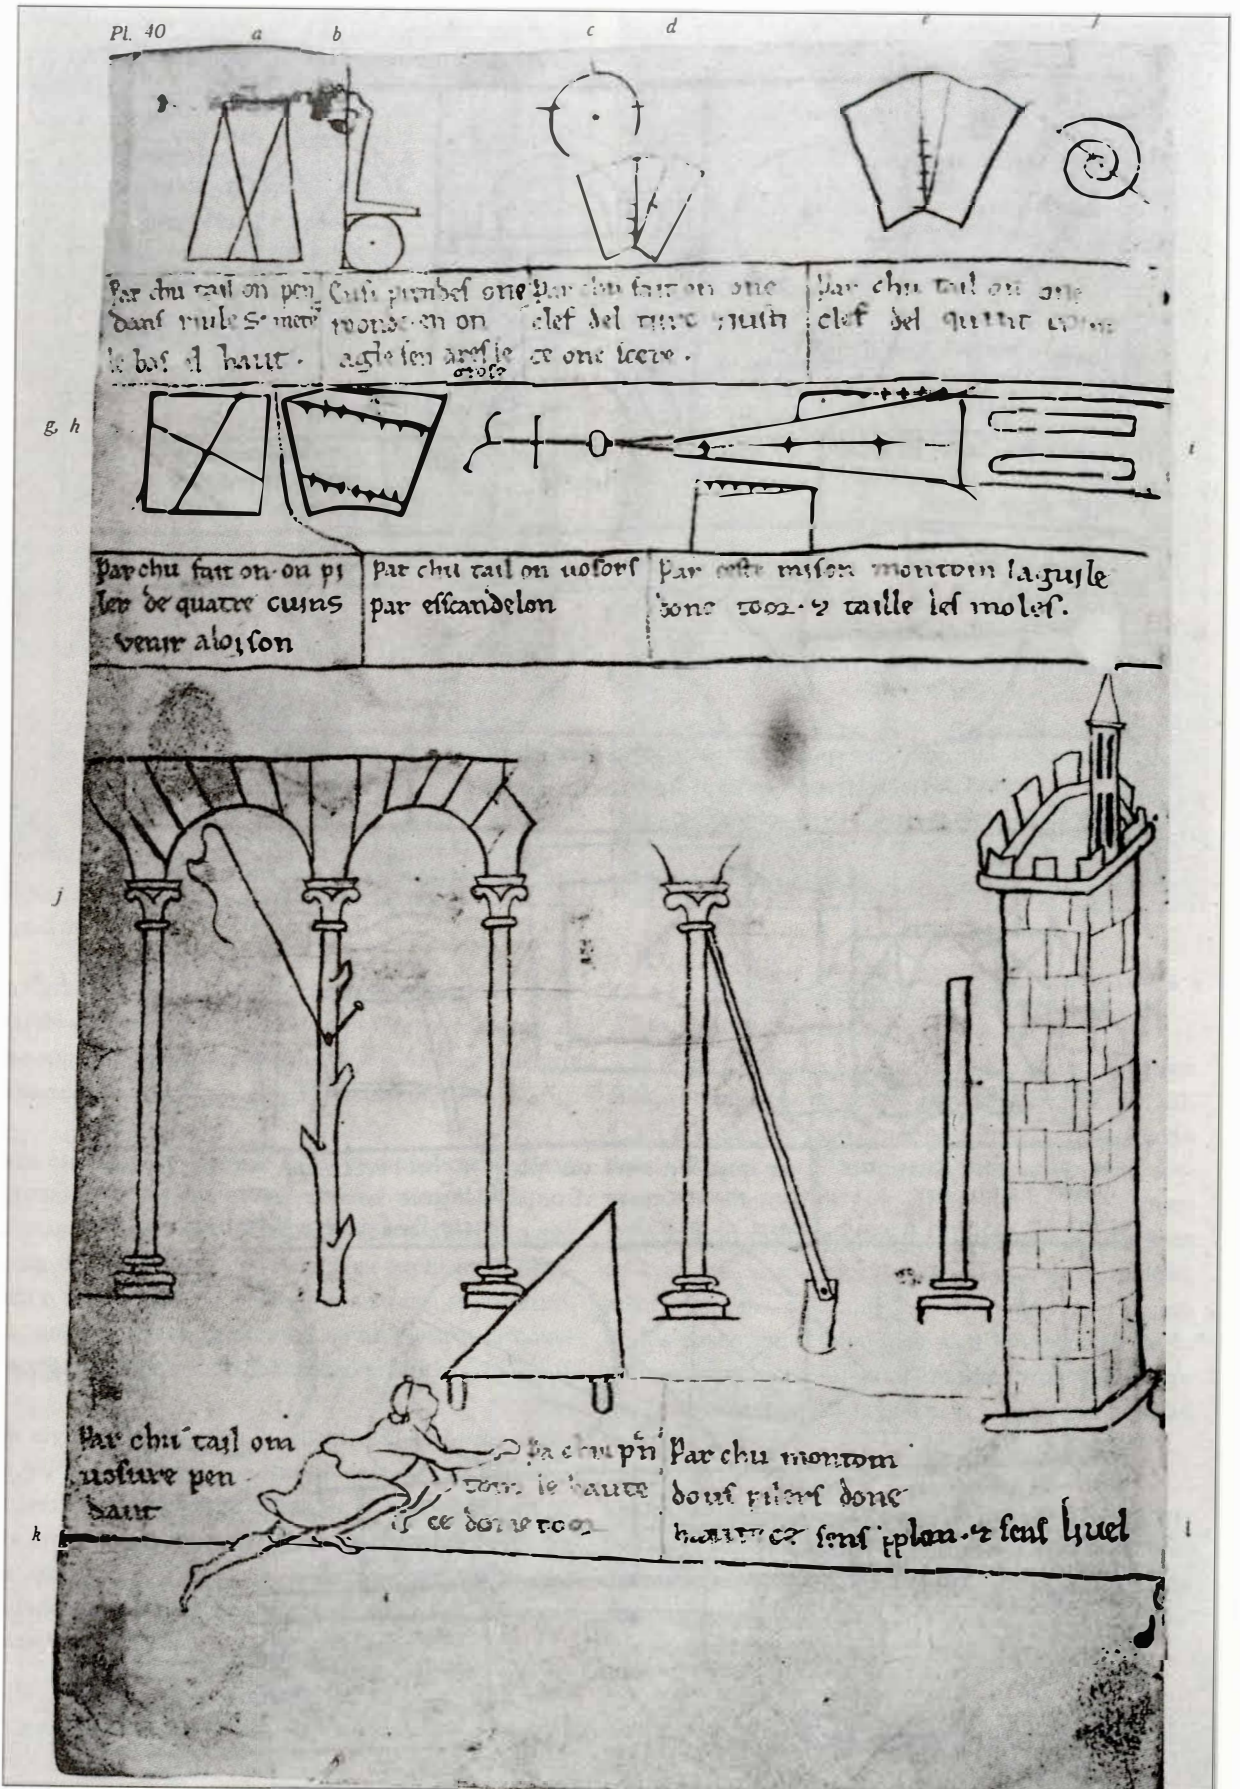 Pl. 40 a b c d e f
Par chu tail on pen
dans riule & mete
le bas el haut.
Ensi prendes one
reonde en on
agle sen ares le
grose
Par chu fait on one
clef del tirc
ce one scere.
Par chu tail on one
clef del quint
g, h
i
Par chu fait on on pi
ler de quatre cuins
venir a loison
Par chu tail on vosors
par esscandelon
Par ceste raison montom la guile
done toor & taille les moles.
j
Par chu tail om
vosure pen
dant
Pa chu pñ
tom le haute
ce done toor
Par chu montom
dous pilers done
hautece sens plom & sens livel
k
l